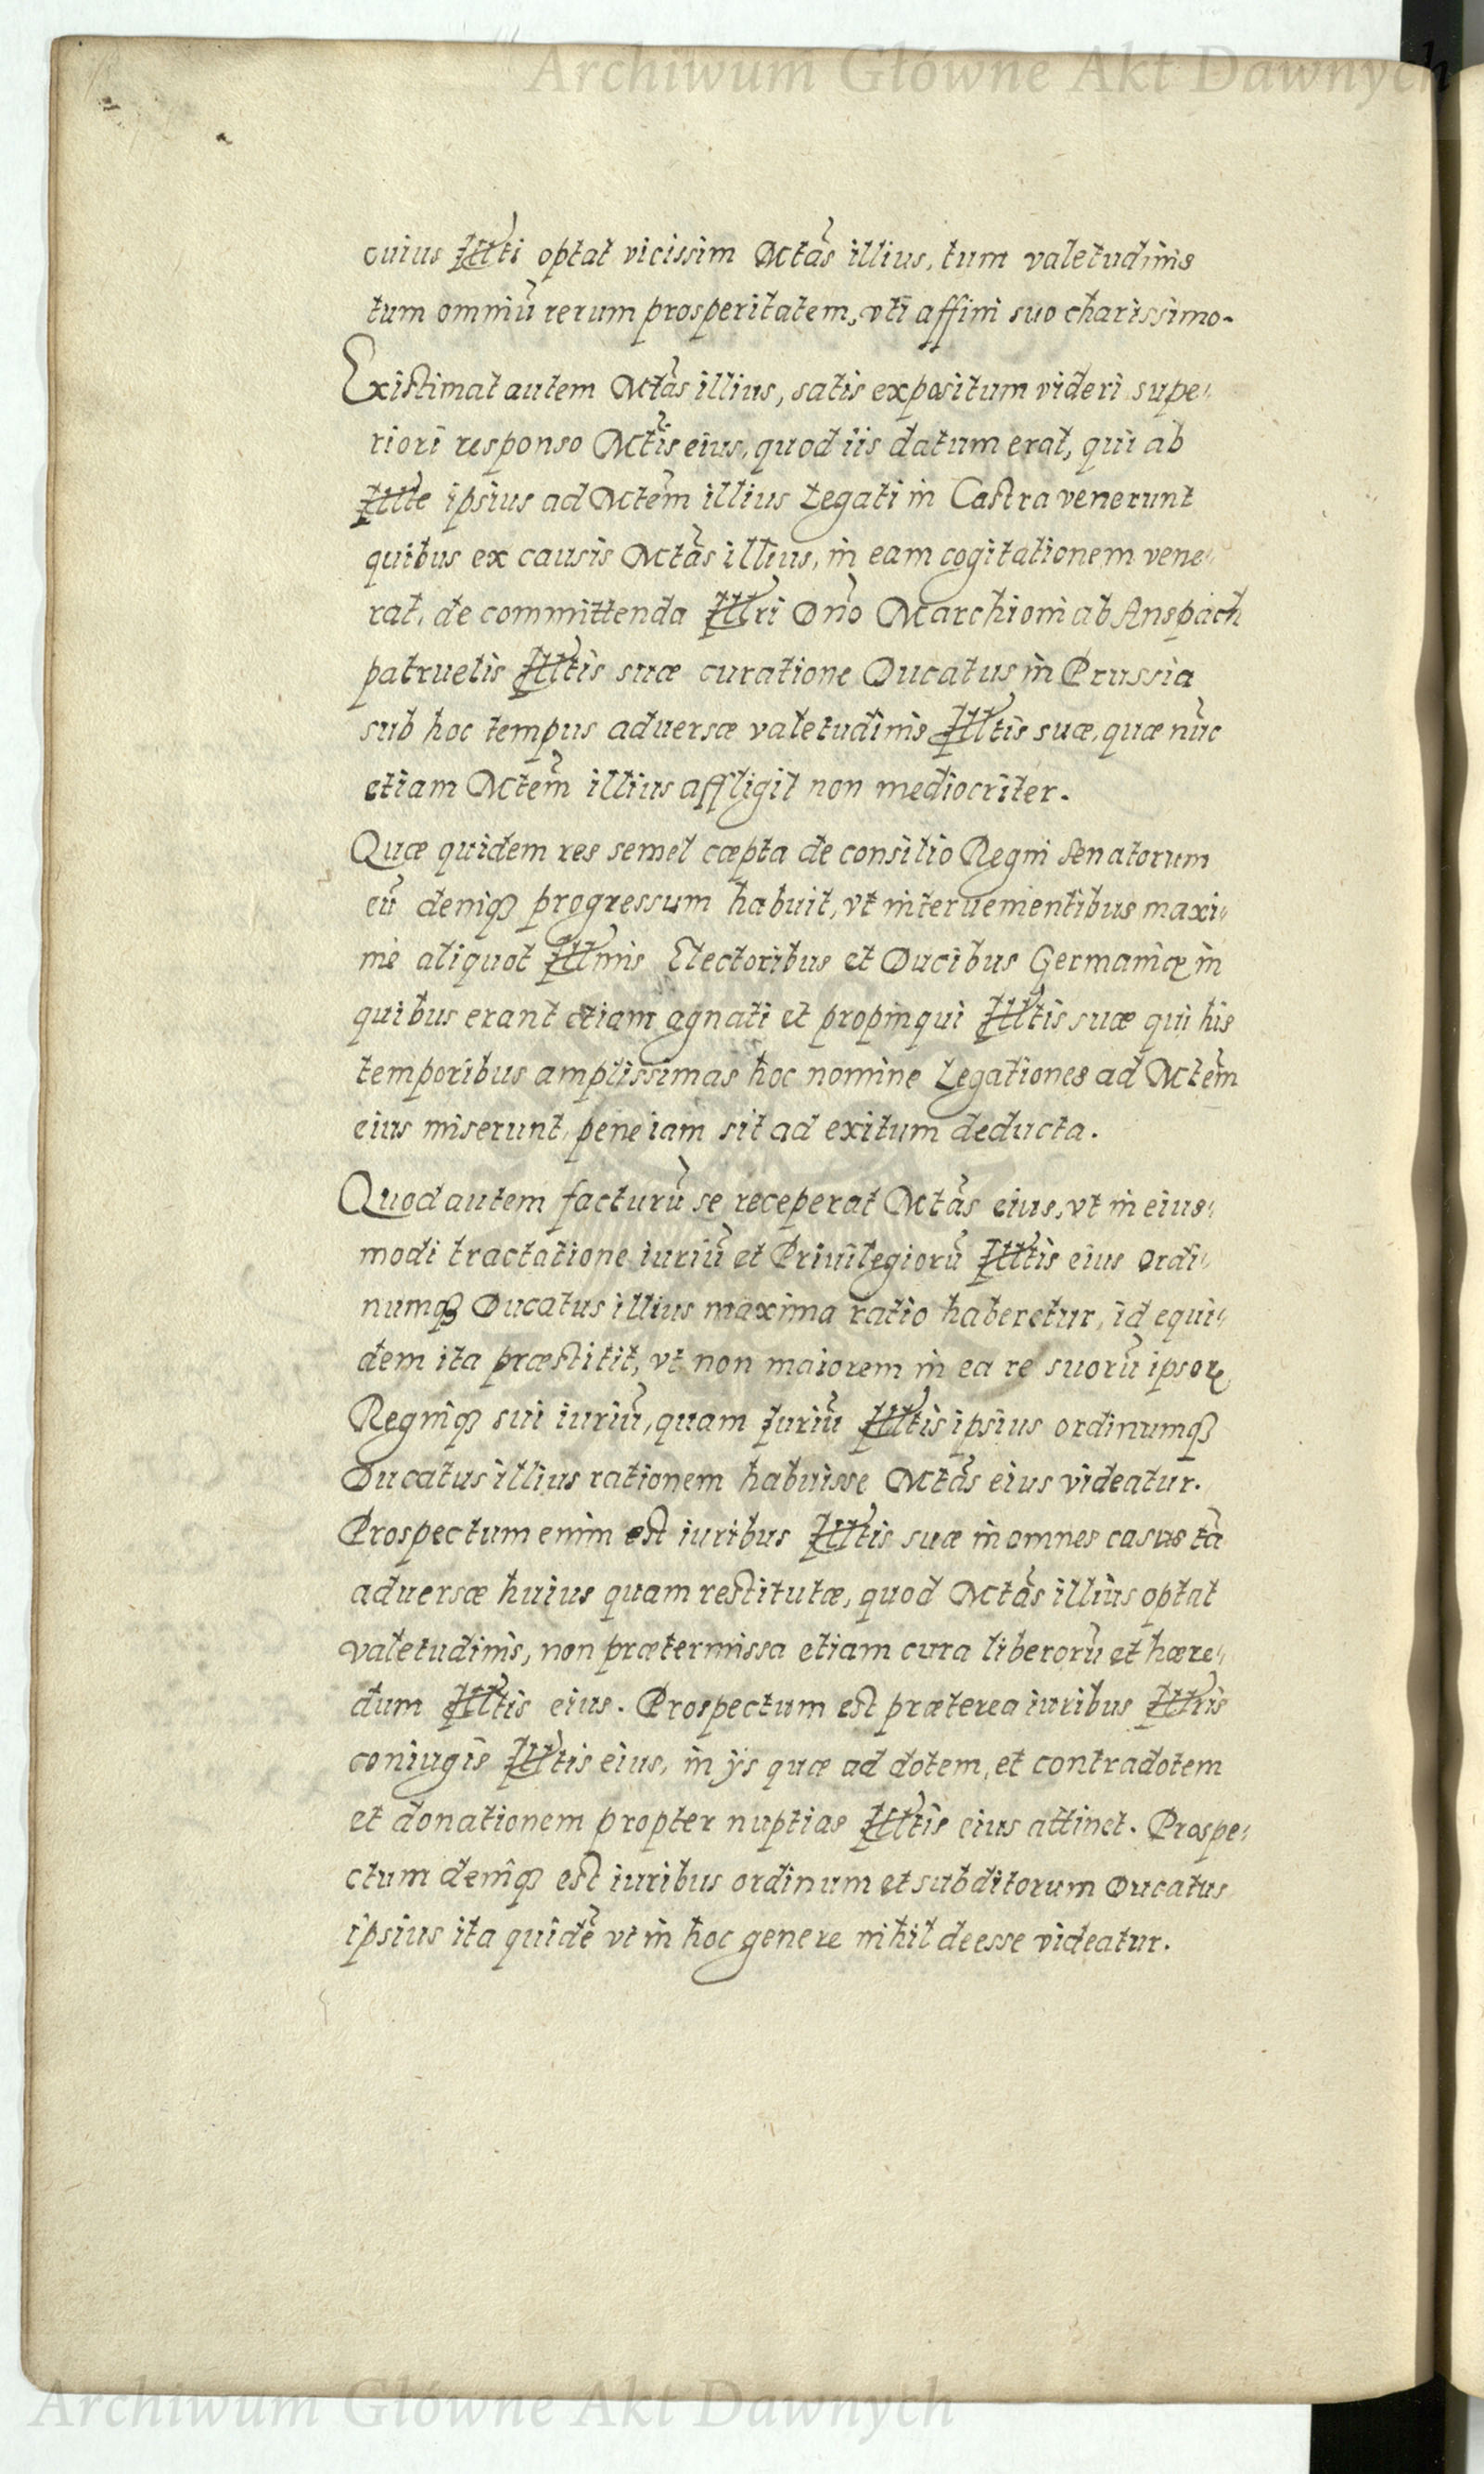 Archiwum Główne Akt Dawnych
cuius Illti optat vicissim Mtãs illius, tum valetudinis
tum omniũ rerum prosperitatem, vti affini suo charissimo.
Existimat autem Mtãs illius, satis expositum videri supe=
riori responso Mtĩs eius, quod iis datum erat, qui ab
Illte ipsius ad Mtẽm illius Legati in Castra venerunt
quibus ex causis Mtãs illius, in eam cogitationem vene=
rat, de committenda Illri Dño Marchioni ab Anspach
patruelis Illtis suæ curatione Ducatus in Prussia
sub hoc tempus aduersæ valetudinis Illtis suæ, quæ nũc
etiam Mtẽm illius affligit non mediocriter.
Quæ quidem res semel cæpta de consilio Regni Senatorum
eũ deniqꝫ progressum habuit, vt interuenientibus maxi=
me aliquot Illmis Electoribus et Ducibus Germaniæ in
quibus erant etiam agnati et propinqui Illtis suæ qui his
temporibus amplissimas hoc nomine Legationes ad Mtẽm
eius miserunt, pene iam sit ad exitum deducta.
Quod autem facturũ se receperat Mtãs eius, vt in eius=
modi tractatione iuriũ et Priuilegiorũ Illtis eius ordi=
numqꝫ Ducatus illius maxima ratio haberetur, id equi=
dem ita præstitit, vt non maiorem in ea re suorũ ipsoꝝ
Regniqꝫ sui iuriũ, quam Iuriũ Illtis ipsius ordinumqꝫ
Ducatus illius rationem habuisse Mtãs eius videatur.
Prospectum enim est iuribus Illtis suæ in omnes casus tã
aduersæ huius quam restitutæ, quod Mtãs illius optat
valetudinis, non prætermissa etiam cura liberorũ et hære=
dum Illtis eius. Prospectum est præterea iuribus Illris
coniugis Illtis eius, in ÿs quæ ad dotem, et contradotem
et donationem propter nuptias Illtis eius attinet. Prospe=
ctum deniqꝫ est iuribus ordinum et subditorum Ducatus
ipsius ita quidẽ vt in hoc genere nihil deesse videatur.
Archiwum Główne Akt Dawnych